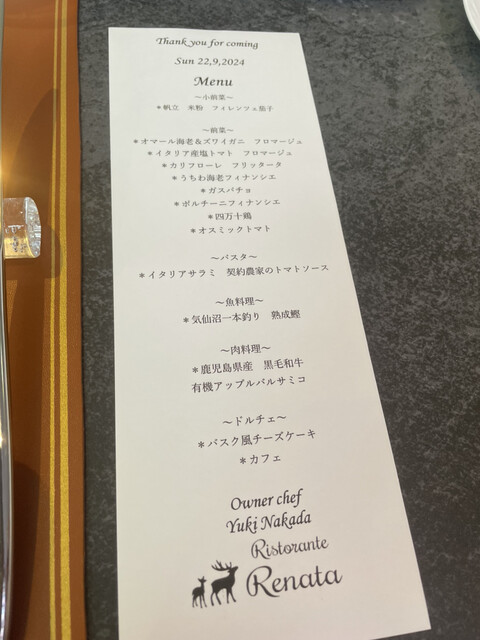 Thank you for coming
Sun 22,9,2024
Menu
～小前菜～
＊帆立　米粉　フィレンツェ茄子
～前菜～
＊オマール海老＆ズワイガニ　フロマージュ
＊イタリア産塩トマト　フロマージュ
＊カリフローレ　フリッタータ
＊うちわ海老フィナンシエ
＊ガスパチョ
＊ポルチーニフィナンシエ
＊四万十鶏
＊オスミックトマト
～パスタ～
＊イタリアサラミ　契約農家のトマトソース
～魚料理～
＊気仙沼一本釣り　熟成鰹
～肉料理～
＊鹿児島県産　黒毛和牛
有機アップルバルサミコ
～ドルチェ～
＊バスク風チーズケーキ
＊カフェ
Owner chef
Yuki Nakada
Ristorante
Renata